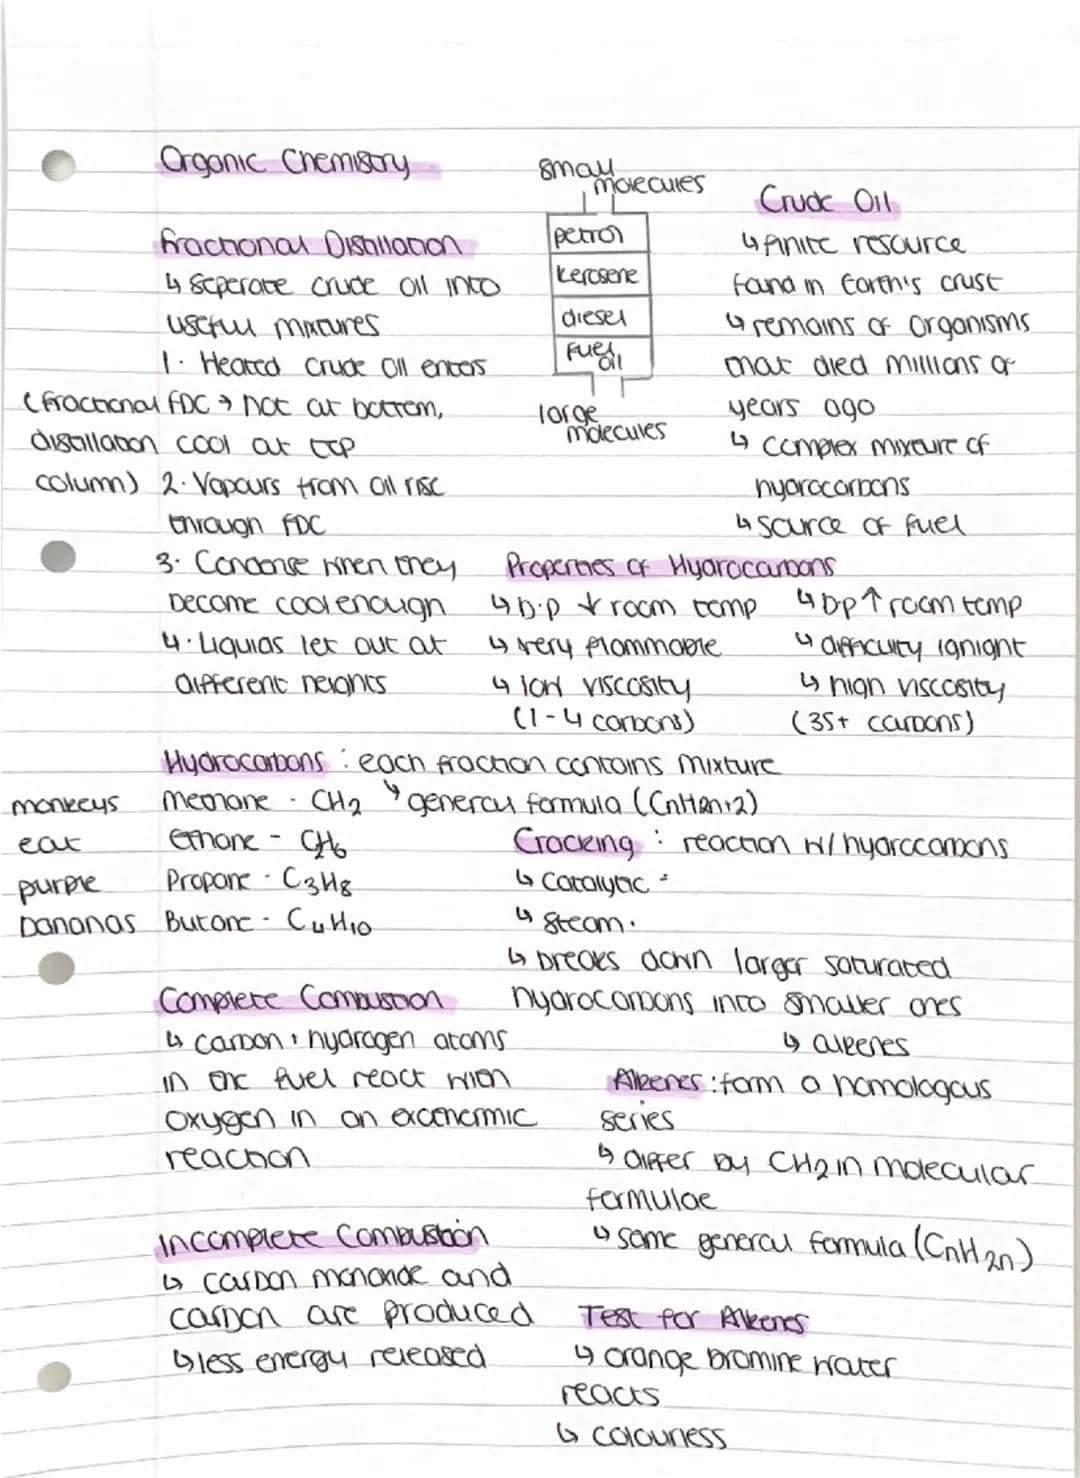 Organic Chemistry
small
molecules
petrol
kerosene
diesel
fuel
oil
large
molecules
Crude Oil
↳ finite resource
found in Earth's crust
↳ remains of organisms
that died millions of
years ago
↳ complex mixture of
hydrocarbons
↳ source of fuel
Fractional Distillation
↳ Seperate crude oil into
useful mixtures
1. Heated crude oil enters
(fractional FDC → hot at bottom,
distillation cool at top
column) 2. Vapours from oil rise
through FDC
3. Condense when they
become cool enough
4. Liquids let out at
different heights
Properties of Hydrocarbons
↳ b.p ↓ room temp
↳ very flammable
↳ low viscosity
(1-4 carbons)
↳ bp ↑ room temp
↳ difficulty ignight
↳ high viscosity
(35+ carbons)
Hydrocarbons : each fraction contains mixture
↳ general formula (CnH2n+2)
monkeys Methane - CH2
eat Ethane - CH6
purple Propane - C3H8
bananas Butane - C4H10
Cracking : reaction w/ hydrocarbons
↳ Catalytic -
↳ Steam.
↳ breaks down larger saturated
hydrocarbons into smaller ones
↳ alkenes
Complete Combustion
↳ carbon + hydrogen atoms
in the fuel react with
oxygen in an exothermic
reaction
Alkenes : form a homologous
series
↳ differ by CH2 in molecular
formulae
↳ same general formula (CnH2n)
Incomplete Combustion
↳ carbon monoxide and
carbon are produced
↳ less energy released
Test for Alkenes
↳ orange bromine water
reacts
↳ colourless